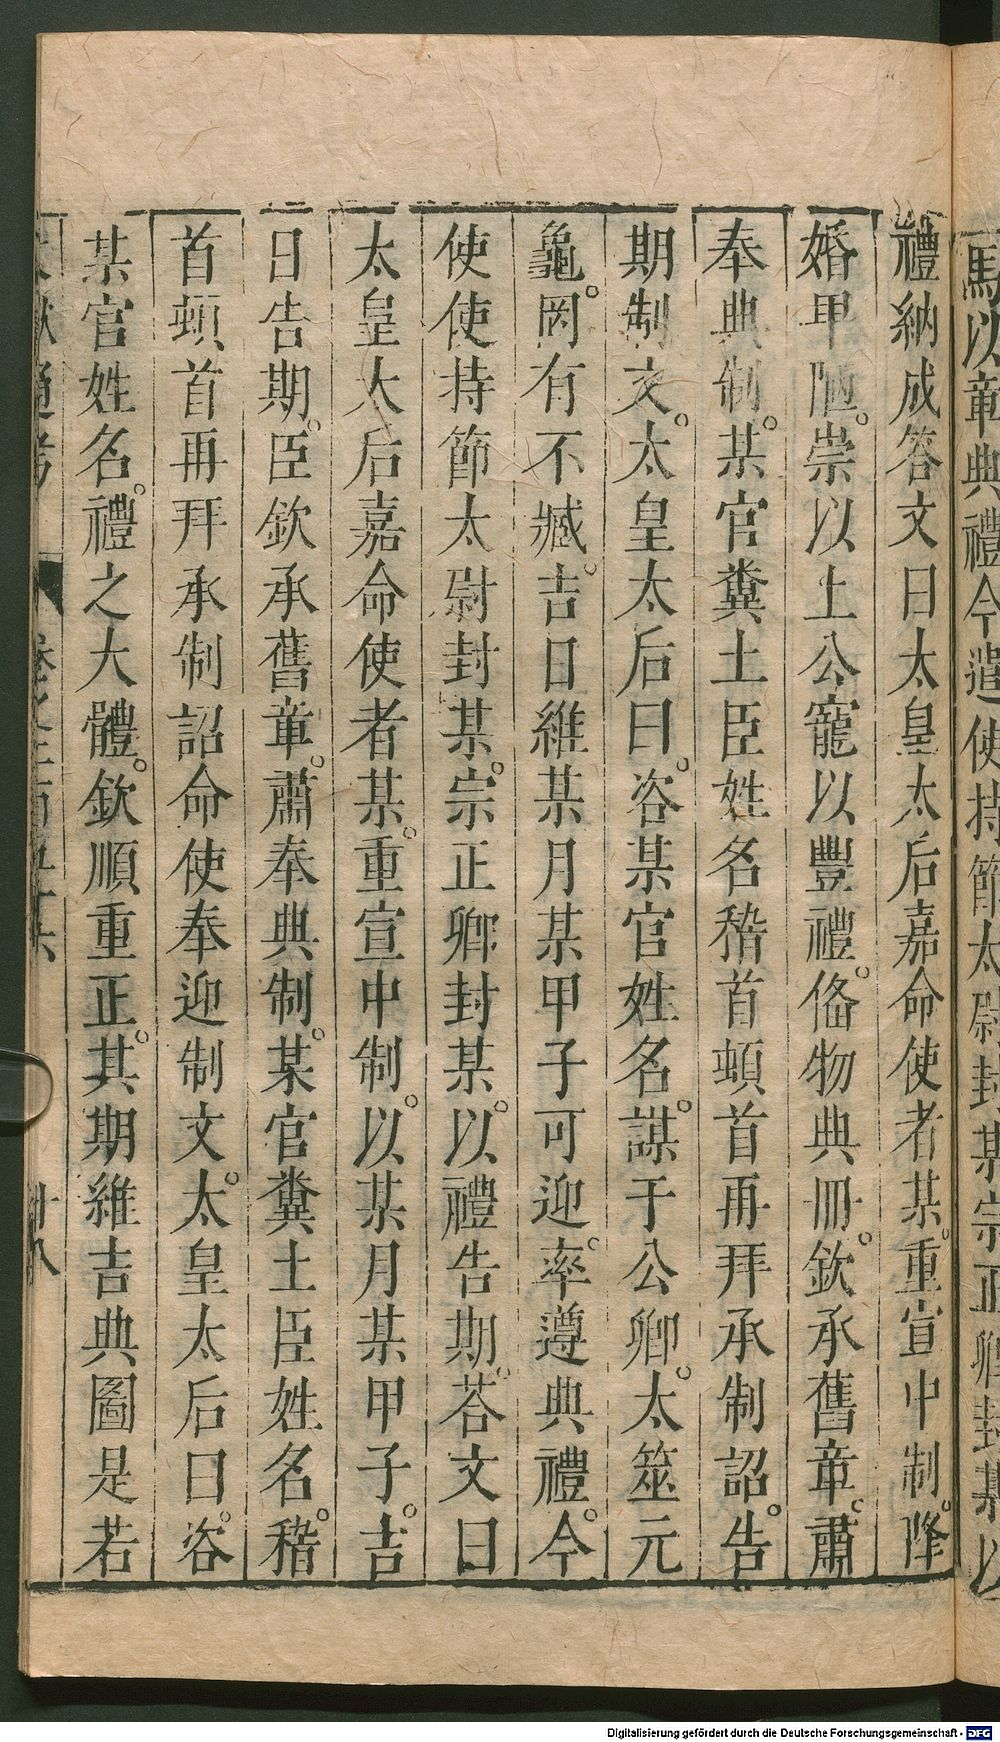 馬以章典禮今遣使持節太尉封某宗正卿封某以
禮納成答文曰太皇太后嘉命使者某。重宣中制。隆
婚卑陋。崇以上公寵以豐禮。俻物典冊。欽承舊章。肅
奉典制。某官糞土臣姓名稽首頓首再拜承制詔。告
期制文。太皇太后曰。咨某官姓名。謀于公卿。太筮元
龜。罔有不臧。吉日維某月某甲子可迎。率遵典禮。今
使使持節太尉封某。宗正卿封某。以禮告期。荅文曰
太皇大后嘉命使者某。重宣中制。以某月某甲子。吉
日告期。臣欽承舊章。肅奉典制。某官糞土臣姓名。稽
首頓首再拜承制詔命使奉迎制文。太皇太后曰。咨
某官姓名。禮之大體。欽順重正。其期維吉典圖是若
文獻通考 卷之二百五十六 廿八
Digitalisierung gefördert durch die Deutsche Forschungsgemeinschaft - DFG